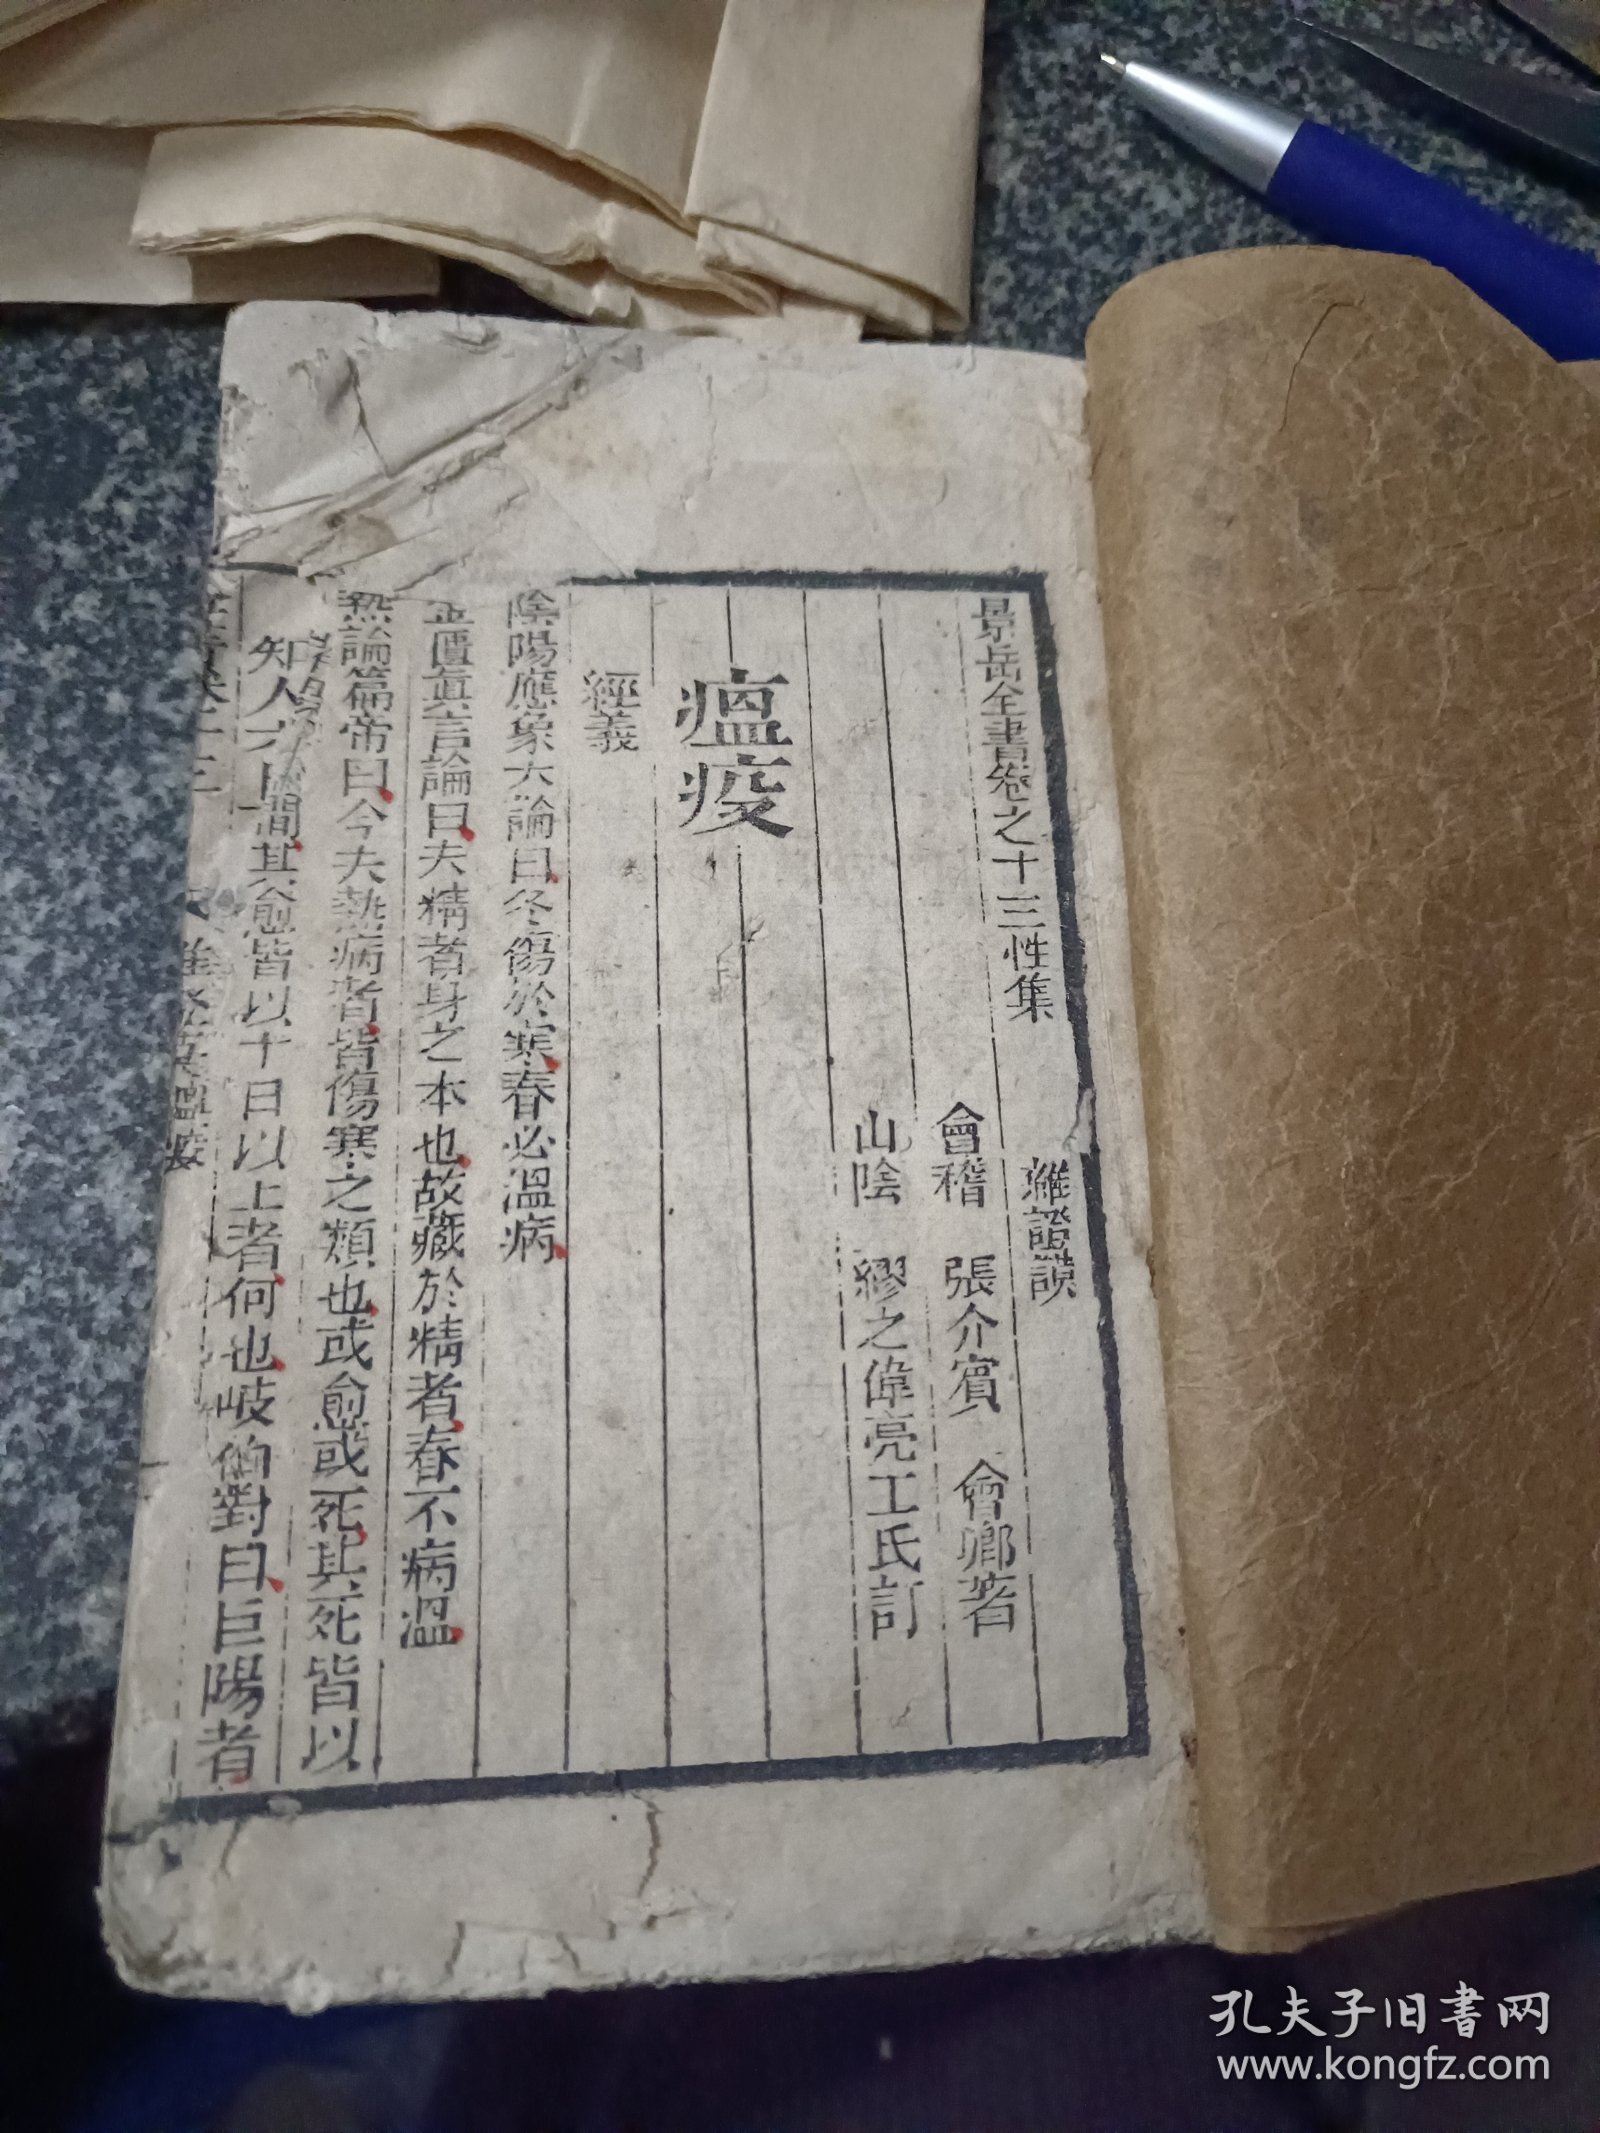 景岳全書卷之十三性集
雜證謨
會稽 張介賓 會卿著
山陰 繆之偉亮工氏訂
瘟疫
經義
陰陽應象大論曰冬傷於寒春必溫病
金匱眞言論曰夫精者身之本也故藏於精者春不病溫
熱論篇帝曰今夫熱病者皆傷寒之類也或愈或死其死皆以
六七日間其愈皆以十日以上者何也岐伯對曰巨陽者
知人
瘟疫
孔夫子旧书网
www.kongfz.com